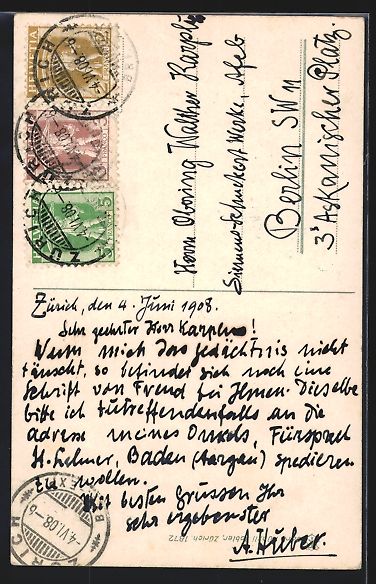 HELVETIA
HELVETIA
HELVETIA
5
ZÜRICH
-4.VI.08-6
Herrn Obering. Walther Karplus
Siemens-Schuckert Werke, Abtlg
Berlin SW 11
3 Askanischer Platz.
Zürich, den 4. Juni 1908.
Sehr geehrter Herr Karplus!
Wenn mich das Gedächtnis nicht
täuscht, so befindet sich noch eine
Schrift von Freud bei Ihnen. Dieselbe
bitte ich zutreffendenfalls an die
Adresse meines Onkels, Fürsprech
H. Lehner, Baden (Aargau) spedieren
zu wollen.
Mit besten Grüssen Ihr
sehr ergebenster
A. Huber.
Zürich. 1872
ZÜRICH
-4.VI.08-6